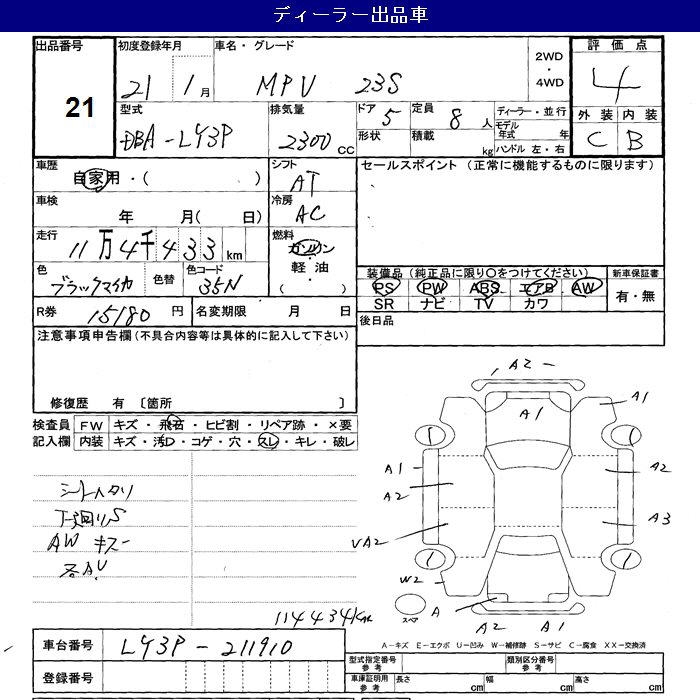 ディーラー出品車
出品番号
21
初度登録年月
21 1月
車名・グレード
MPV 23S
2WD
・
4WD
評価点
4
外装 内装
C B
型式
DBA-LY3P
排気量
2300 CC
ドア 5
形状
定員 8人
積載 kg
ディーラー・並行
モデル年式 年
ハンドル 左・右
車歴
自家用・( )
シフト
AT
セールスポイント (正常に機能するものに限ります)
車検
年 月( 日)
冷房
AC
走行
11万4千433km
燃料
ガソリン
・
軽油
( )
色
ブラックマイカ
色替
色コード
35N
装備品(純正品に限り○をつけてください)
PS PW ABS エアB AW
SR ナビ TV カワ
新車保証書
有・無
R券 15180円
名変期限 月 日
後日品
注意事項申告欄(不具合内容等は具体的に記入して下さい)
修復歴 有 〔箇所 〕
検査員記入欄
FW キズ・飛石・ヒビ割・リペア跡・×要
内装 キズ・汚D・コゲ・穴・スレ・キレ・破レ
シートヘタリ
下廻りS
AW キズ
各AU
114434km
A2
A1
A1
1
1
A1
A2
A2
A3
VA2
1
1
W2
A
A2
A1
スペア
A-キズ E-エクボ U-凹み W-補修跡 S-サビ C-腐食 XX-交換済
車台番号
LY3P-211910
登録番号
型式指定番号
参考
類別区分番号
参考
車庫証明用
参考
長さ cm
幅 cm
高さ cm